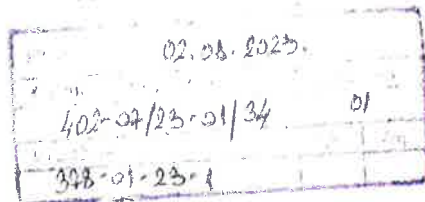 02.08.2023.
402-07/23-01/34 01
378-01-23-1